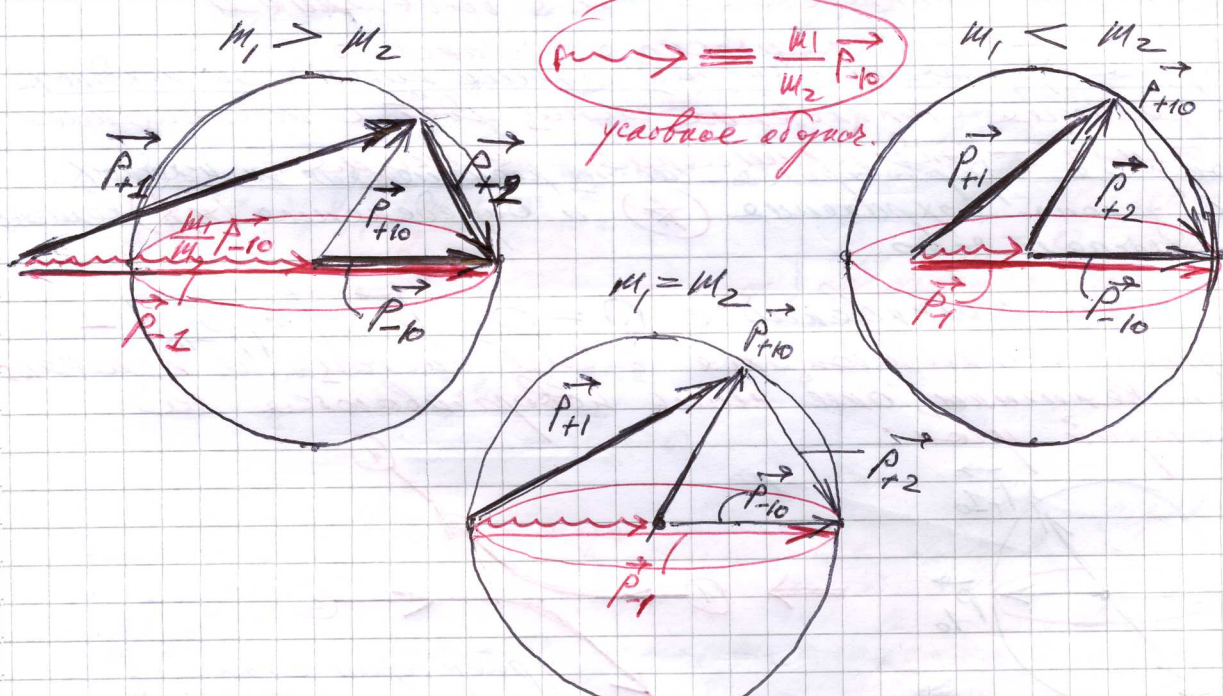 m₁ > m₂
≡ m1/m₂ P⃗₋₁₀
условное обознач.
m₁ < m₂
P⃗₊₁
P⃗₊₂
P⃗₊₁₀
m₁/m P⃗₋₁₀
P⃗₋₁
P⃗₋₁₀
P⃗₊₁₀
P⃗₊₁
P⃗₊₂
P⃗₋₁
P⃗₋₁₀
m₁ = m₂
P⃗₊₁₀
P⃗₊₁
P⃗₊₂
P⃗₋₁₀
P⃗₋₁